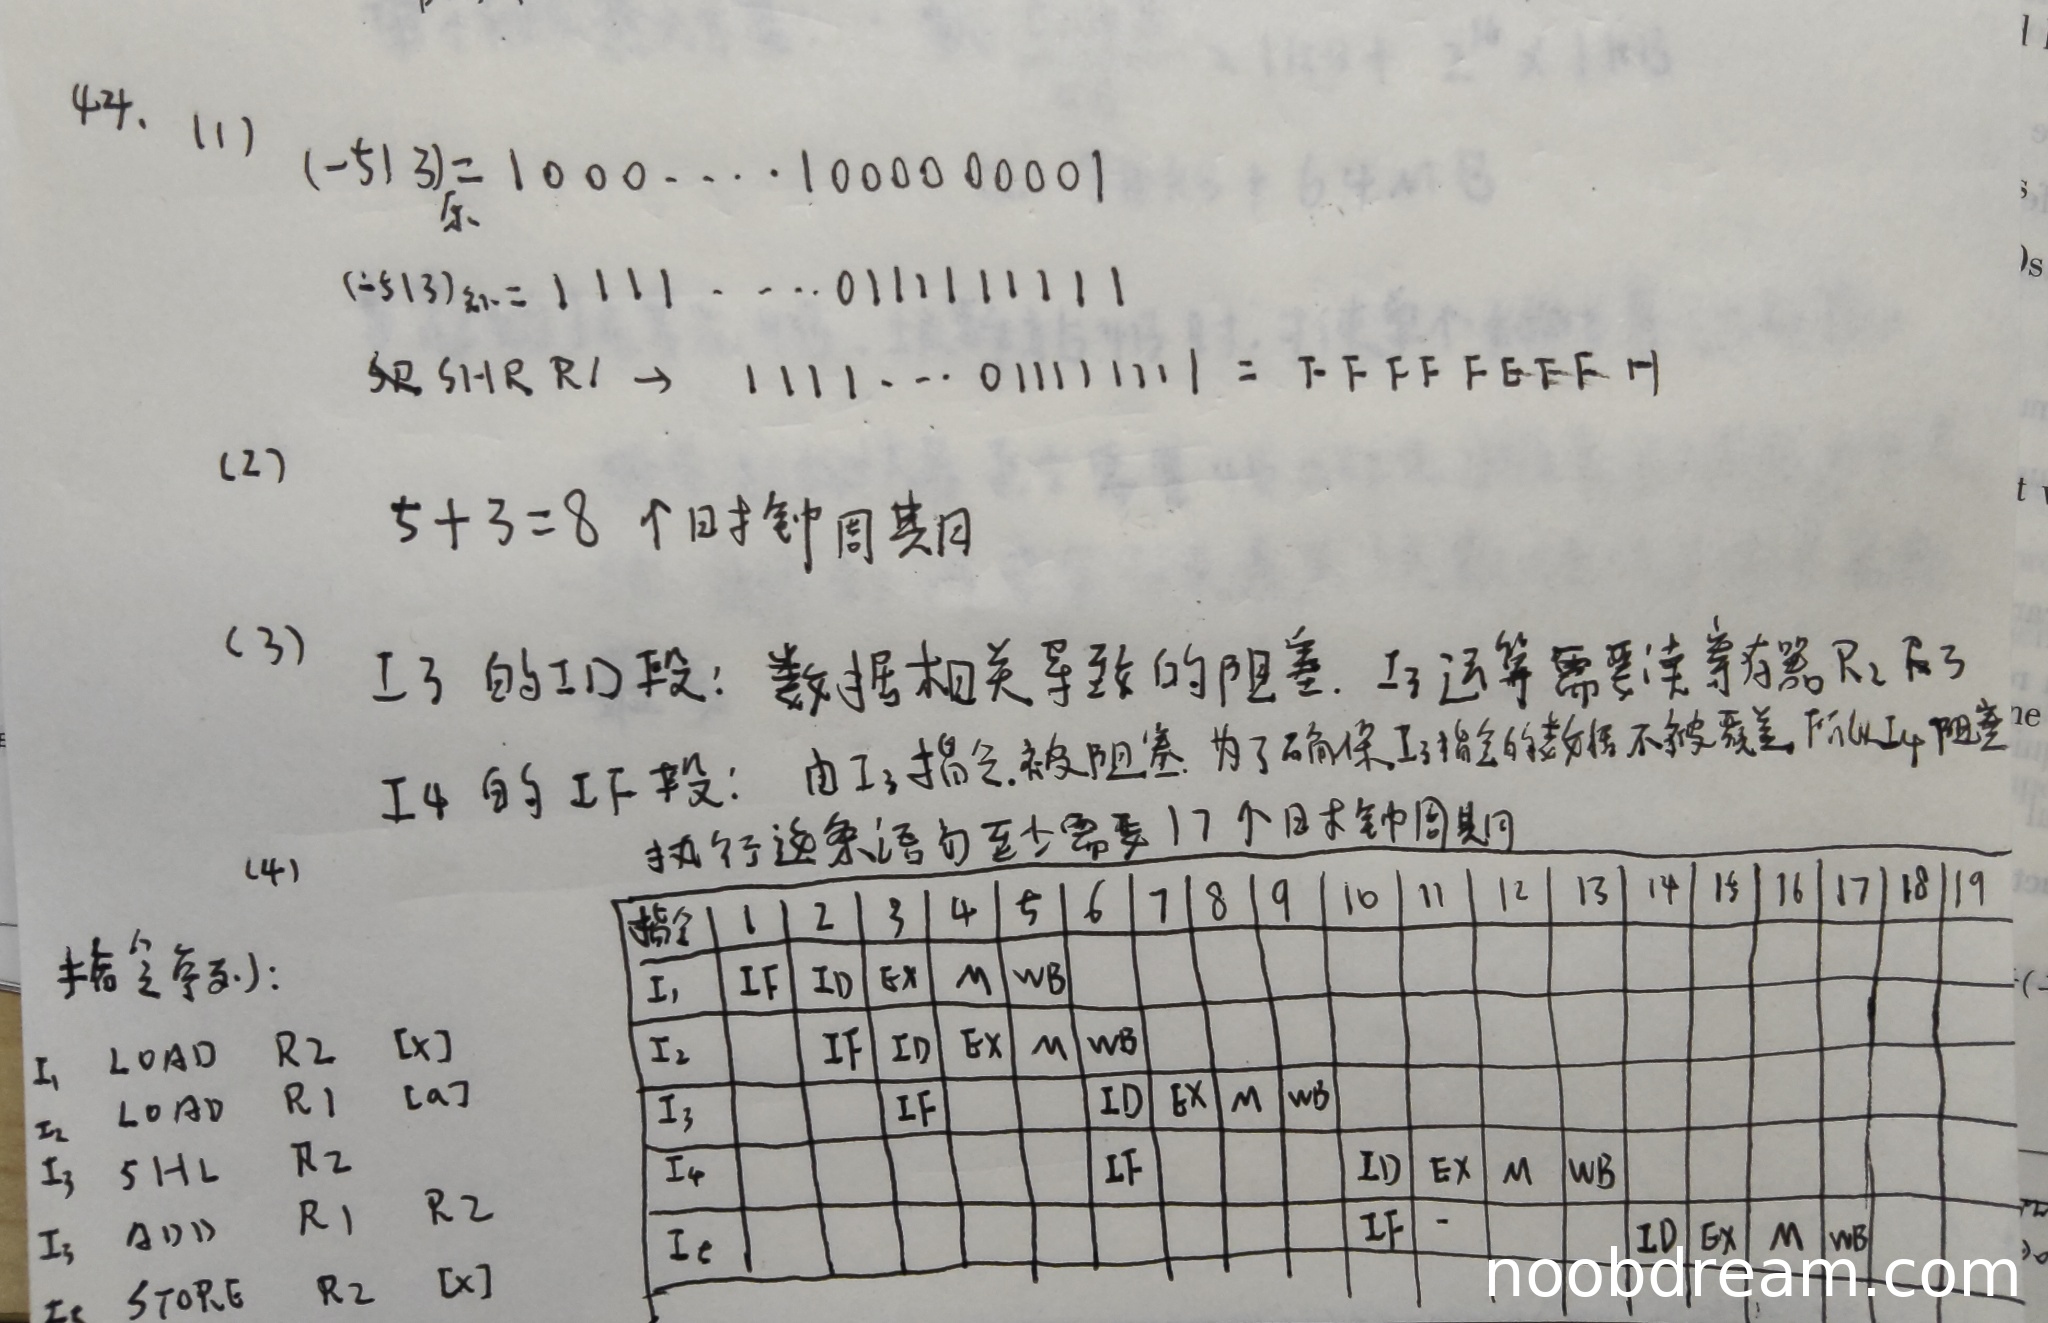 44.
(1)
(-513)原 = 1000.....1000000001
(-513)补 = 1111.....0111111111
SHR R1 → 1111....011111111 = FFFFFEFFH
(2)
5+3=8 个时钟周期
(3)
I3 的ID段: 数据相关导致的阻塞. I3运算需要读寄存器R2
I4 的 IF段: 由I3指令被阻塞. 为了确保I3指令的数据不被覆盖,所以I4阻塞
(4)
执行这条语句至少需要17个时钟周期
指令 1 2 3 4 5 6 7 8 9 10 11 12 13 14 15 16 17 18 19
I1 IF ID EX M WB
I2 IF ID EX M WB
I3 IF ID EX M WB
I4 IF ID EX M WB
I5 IF - ID EX M WB
指令序列:
I1 LOAD R2 [x]
I2 LOAD R1 [a]
I3 SHL R2
I3 ADD R1 R2
I5 STORE R2 [x]
noobdream.com